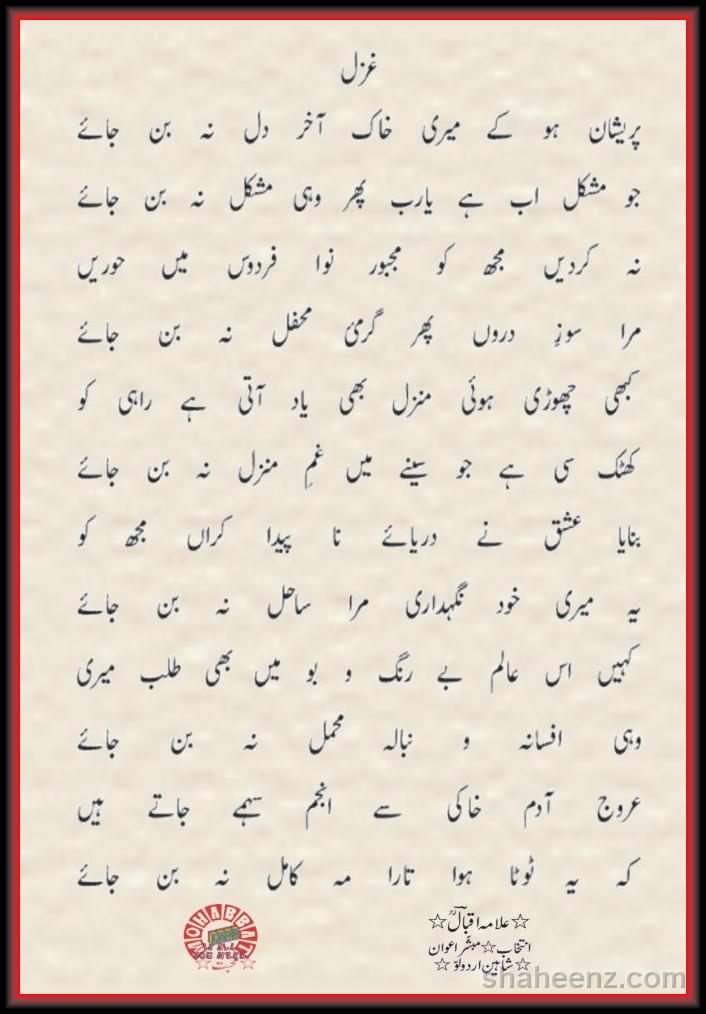 غزل
پریشان ہو کے میری خاک آخر دل نہ بن جائے
جو مشکل اب ہے یارب پھر وہی مشکل نہ بن جائے
نہ کردیں مجھ کو مجبور نوا فردوس میں حوریں
مرا سوزِ دروں پھر گرمئ محفل نہ بن جائے
کبھی چھوڑی ہوئی منزل بھی یاد آتی ہے راہی کو
کھٹک سی ہے جو سینے میں غمِ منزل نہ بن جائے
بنایا عشق نے دریائے نا پیدا کراں مجھ کو
یہ میری خود نگہداری مرا ساحل نہ بن جائے
کہیں اس عالم بے رنگ و بو میں بھی طلب میری
وہی افسانہ و نبالہ محمل نہ بن جائے
عروج آدم خاکی سے انجم سہمے جاتے ہیں
کہ یہ ٹوٹا ہوا تارا مہ کامل نہ بن جائے
☆علامہ اقبالؒ☆
انتخاب☆مبشر اعوان
☆شاہین اردولو☆
MOHABBAT
☆محبت☆
shaheenz.com